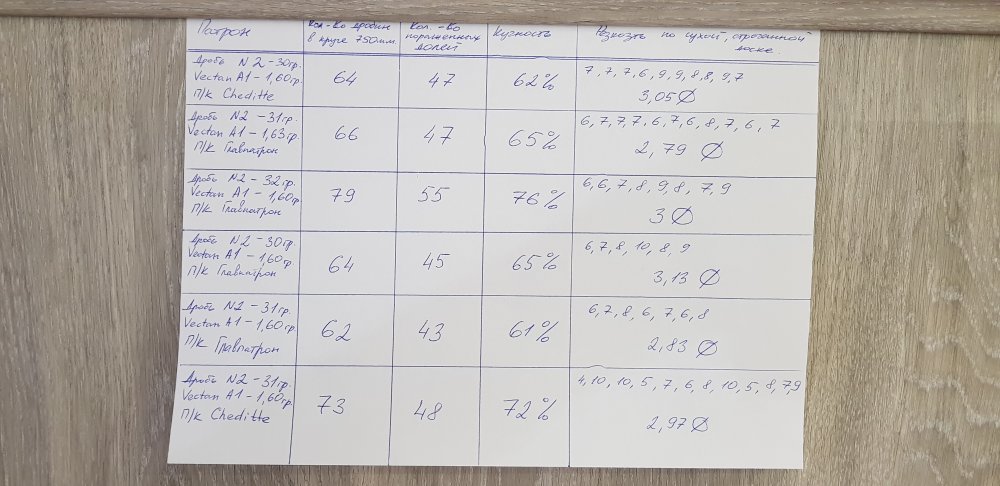 Патрон
Кол-во дробин
в круге 750мм.
Кол.-во
поражённых
долей
Кучность
Резкозть по сухой, строганной
доске.
Дробь N2 - 30гр.
Vectan A1 - 1,60гр.
П/к Cheditte
64
47
62%
7, 7, 7, 6, 9, 9, 8, 8, 9, 7
3,05 Ø
Дробь N2 - 31гр.
Vectan A1 - 1,63гр.
П/к Главпатрон
66
47
65%
6, 7, 7, 7, 6, 7, 6, 8, 7, 6, 7
2,79 Ø
Дробь N2 - 32гр.
Vectan A1 - 1,60гр.
П/к Главпатрон
79
55
76%
6, 6, 7, 8, 9, 8, 7, 9
3 Ø
Дробь N2 - 30гр.
Vectan A1 - 1,60гр.
П/к Главпатрон
64
45
65%
6, 7, 8, 10, 8, 9
3,13 Ø
Дробь N2 - 31гр.
Vectan A1 - 1,60гр.
П/к Главпатрон
62
43
61%
6, 7, 8, 6, 7, 6, 8
2,83 Ø
Дробь N2 - 31гр.
Vectan A1 - 1,60гр.
П/к Cheditte
73
48
72%
4, 10, 10, 5, 7, 6, 8, 10, 5, 8, 7,9
2,97 Ø